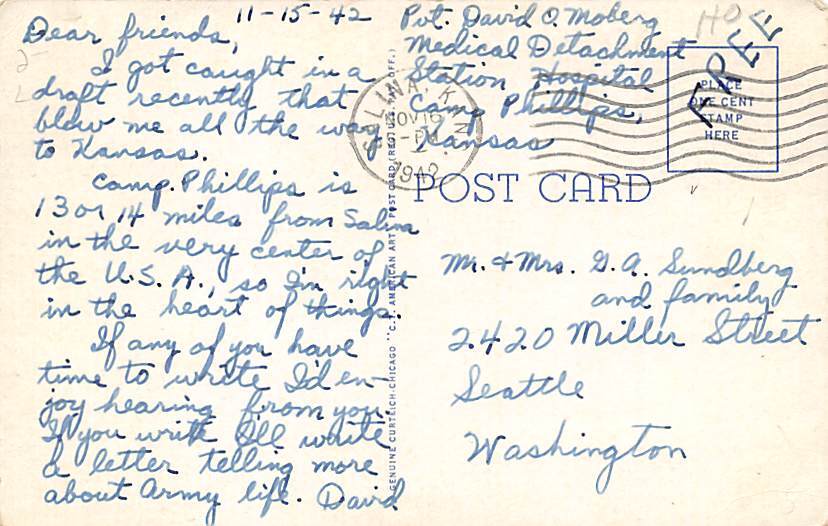 11-15-42
Dear friends,
I got caught in a
draft recently that
blew me all the way
to Kansas.
Camp Phillips is
13 or 14 miles from Salina
in the very center of
the U.S.A., so I'm right
in the heart of things.
If any of you have
time to write I'd en-
joy hearing from you.
If you write I'll write
a letter telling more
about Army life. David
GENUINE CURTEICH-CHICAGO "C.T. AMERICAN ART" POST CARD (REG. U.S. PAT. OFF.)
Pvt. David O. Moberg
Medical Detachment
Station Hospital
Camp Phillips,
Kansas
SALINA, KAN.
NOV 16
PM
1942
HO
FREE
PLACE
ONE CENT
STAMP
HERE
POST CARD
Mr. & Mrs. G. A. Sundberg
and family
2420 Miller Street
Seattle
Washington